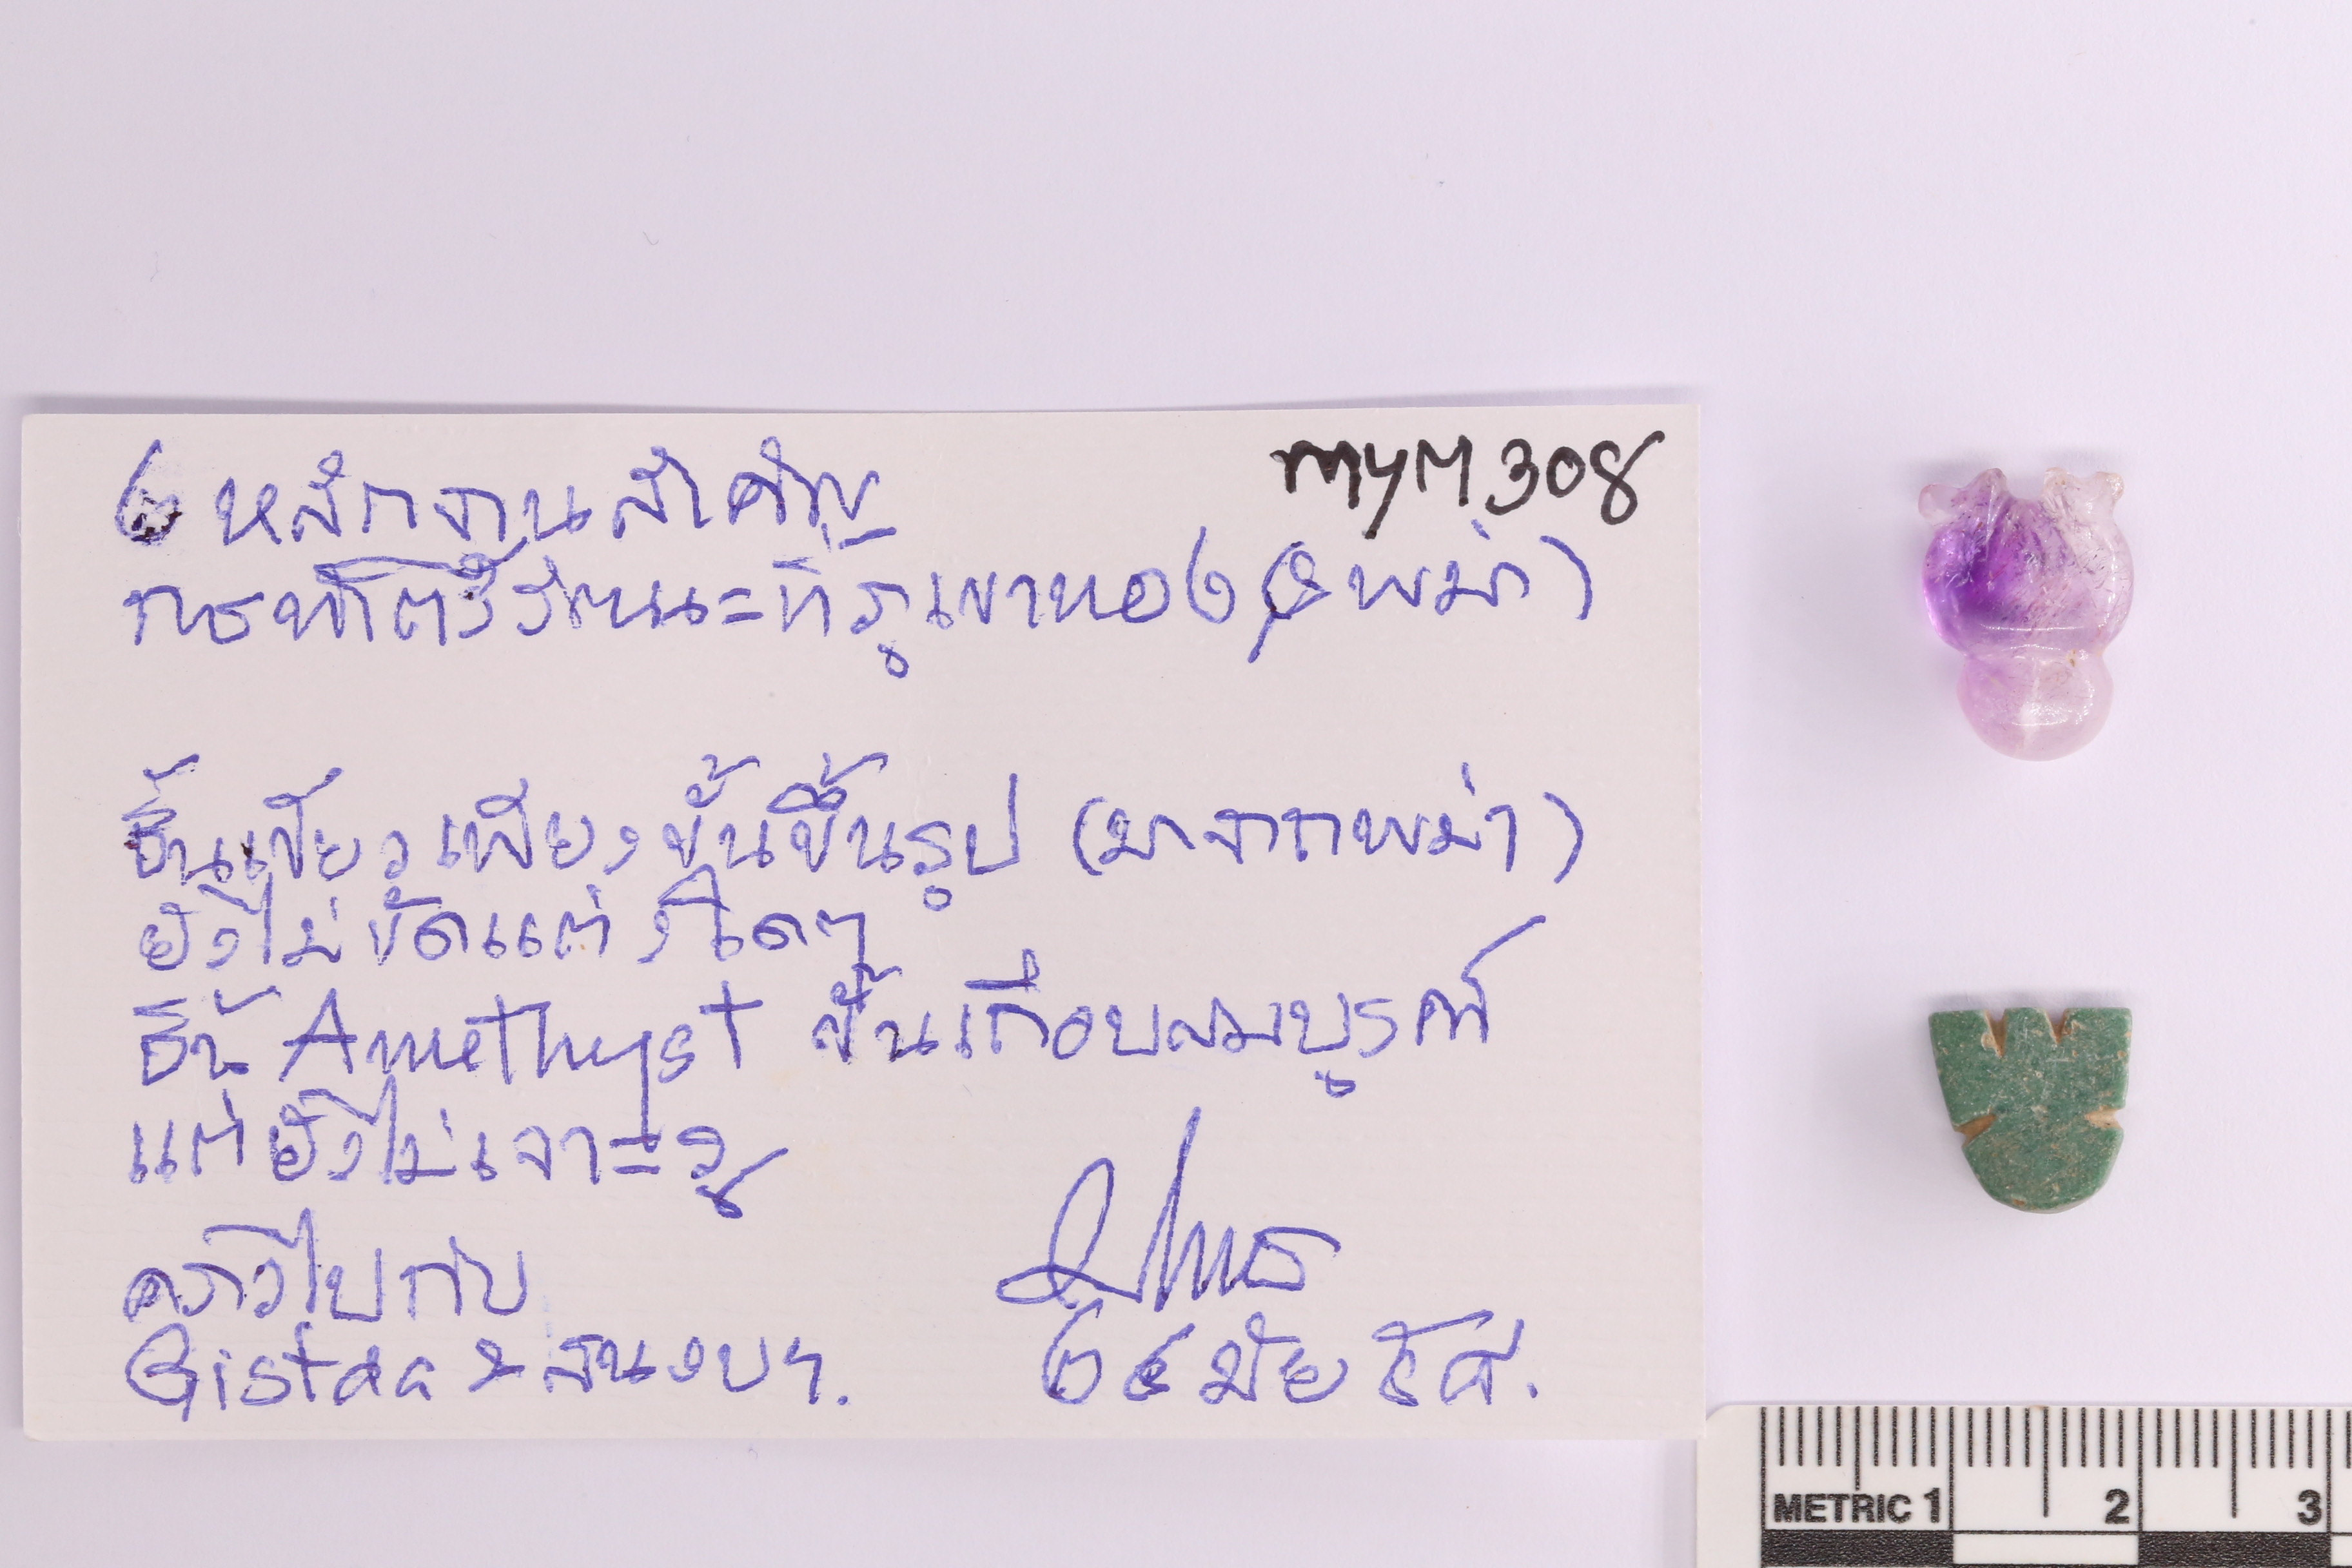 ๒ หลักฐานสำคัญ
MYM 308
การทำตรีรัตนะที่ภูเขาทอง (& พม่า)
ชิ้นเขียวเพียงขั้นขึ้นรูป (มาจากพม่า)
ยังไม่ขัดแต่งใดๆ
ชิ้น Amethyst ขั้นเกือบสมบูรณ์
แต่ยังไม่เจาะรู
คราวไปกับ
Gistda &
METRIC 1 2 3